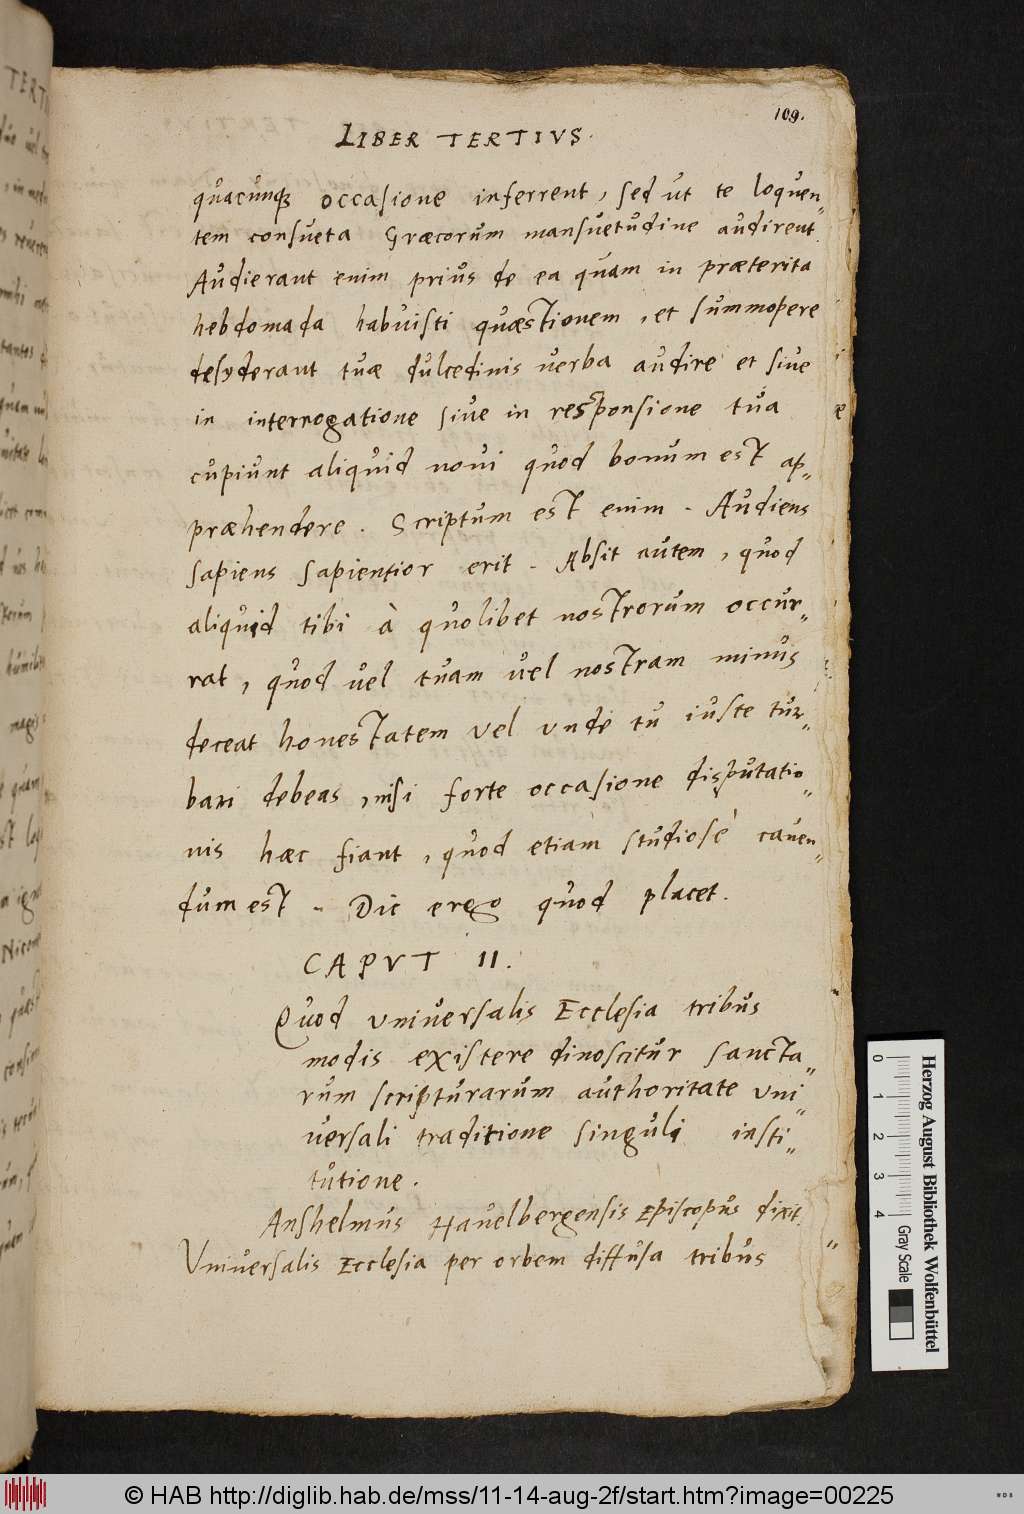 109.
LIBER TERTIVS.
quacunq; occasione inferrent, sed ut te loquen„
tem consueta Græcorum mansuetudine audirent.
Audierant enim prius de ea quam in præterita
hebdomada habuisti quæstionem, et summopere
desyderant tuæ dulcedinis verba audire et sive
in interrogatione sive in responsione tua
cupiunt aliquid novi quod bonum est ap„
præhendere. Scriptum est enim. Audiens
sapiens sapientior erit. Absit autem, quod
aliquid tibi à quolibet nostrorum occur„
rat, quod vel tuam vel nostram minus
deceat honestatem vel unde tu iuste tur„
bari debeas, nisi forte occasione disputatio„
nis hæc fiant, quod etiam studiosè caven„
dum est. Dic ergo quod placet.
CAPVT II.
Quod universalis Ecclesia tribus
modis existere dinoscitur sancta„
rum scripturarum authoritate uni„
versali traditione singuli insti„
tutione.
Anshelmus Havelbergensis Episcopus dixit.
Universalis Ecclesia per orbem diffusa tribus „
Herzog August Bibliothek Wolfenbüttel
0 1 2 3 4 Gray Scale
© HAB http://diglib.hab.de/mss/11-14-aug-2f/start.htm?image=00225